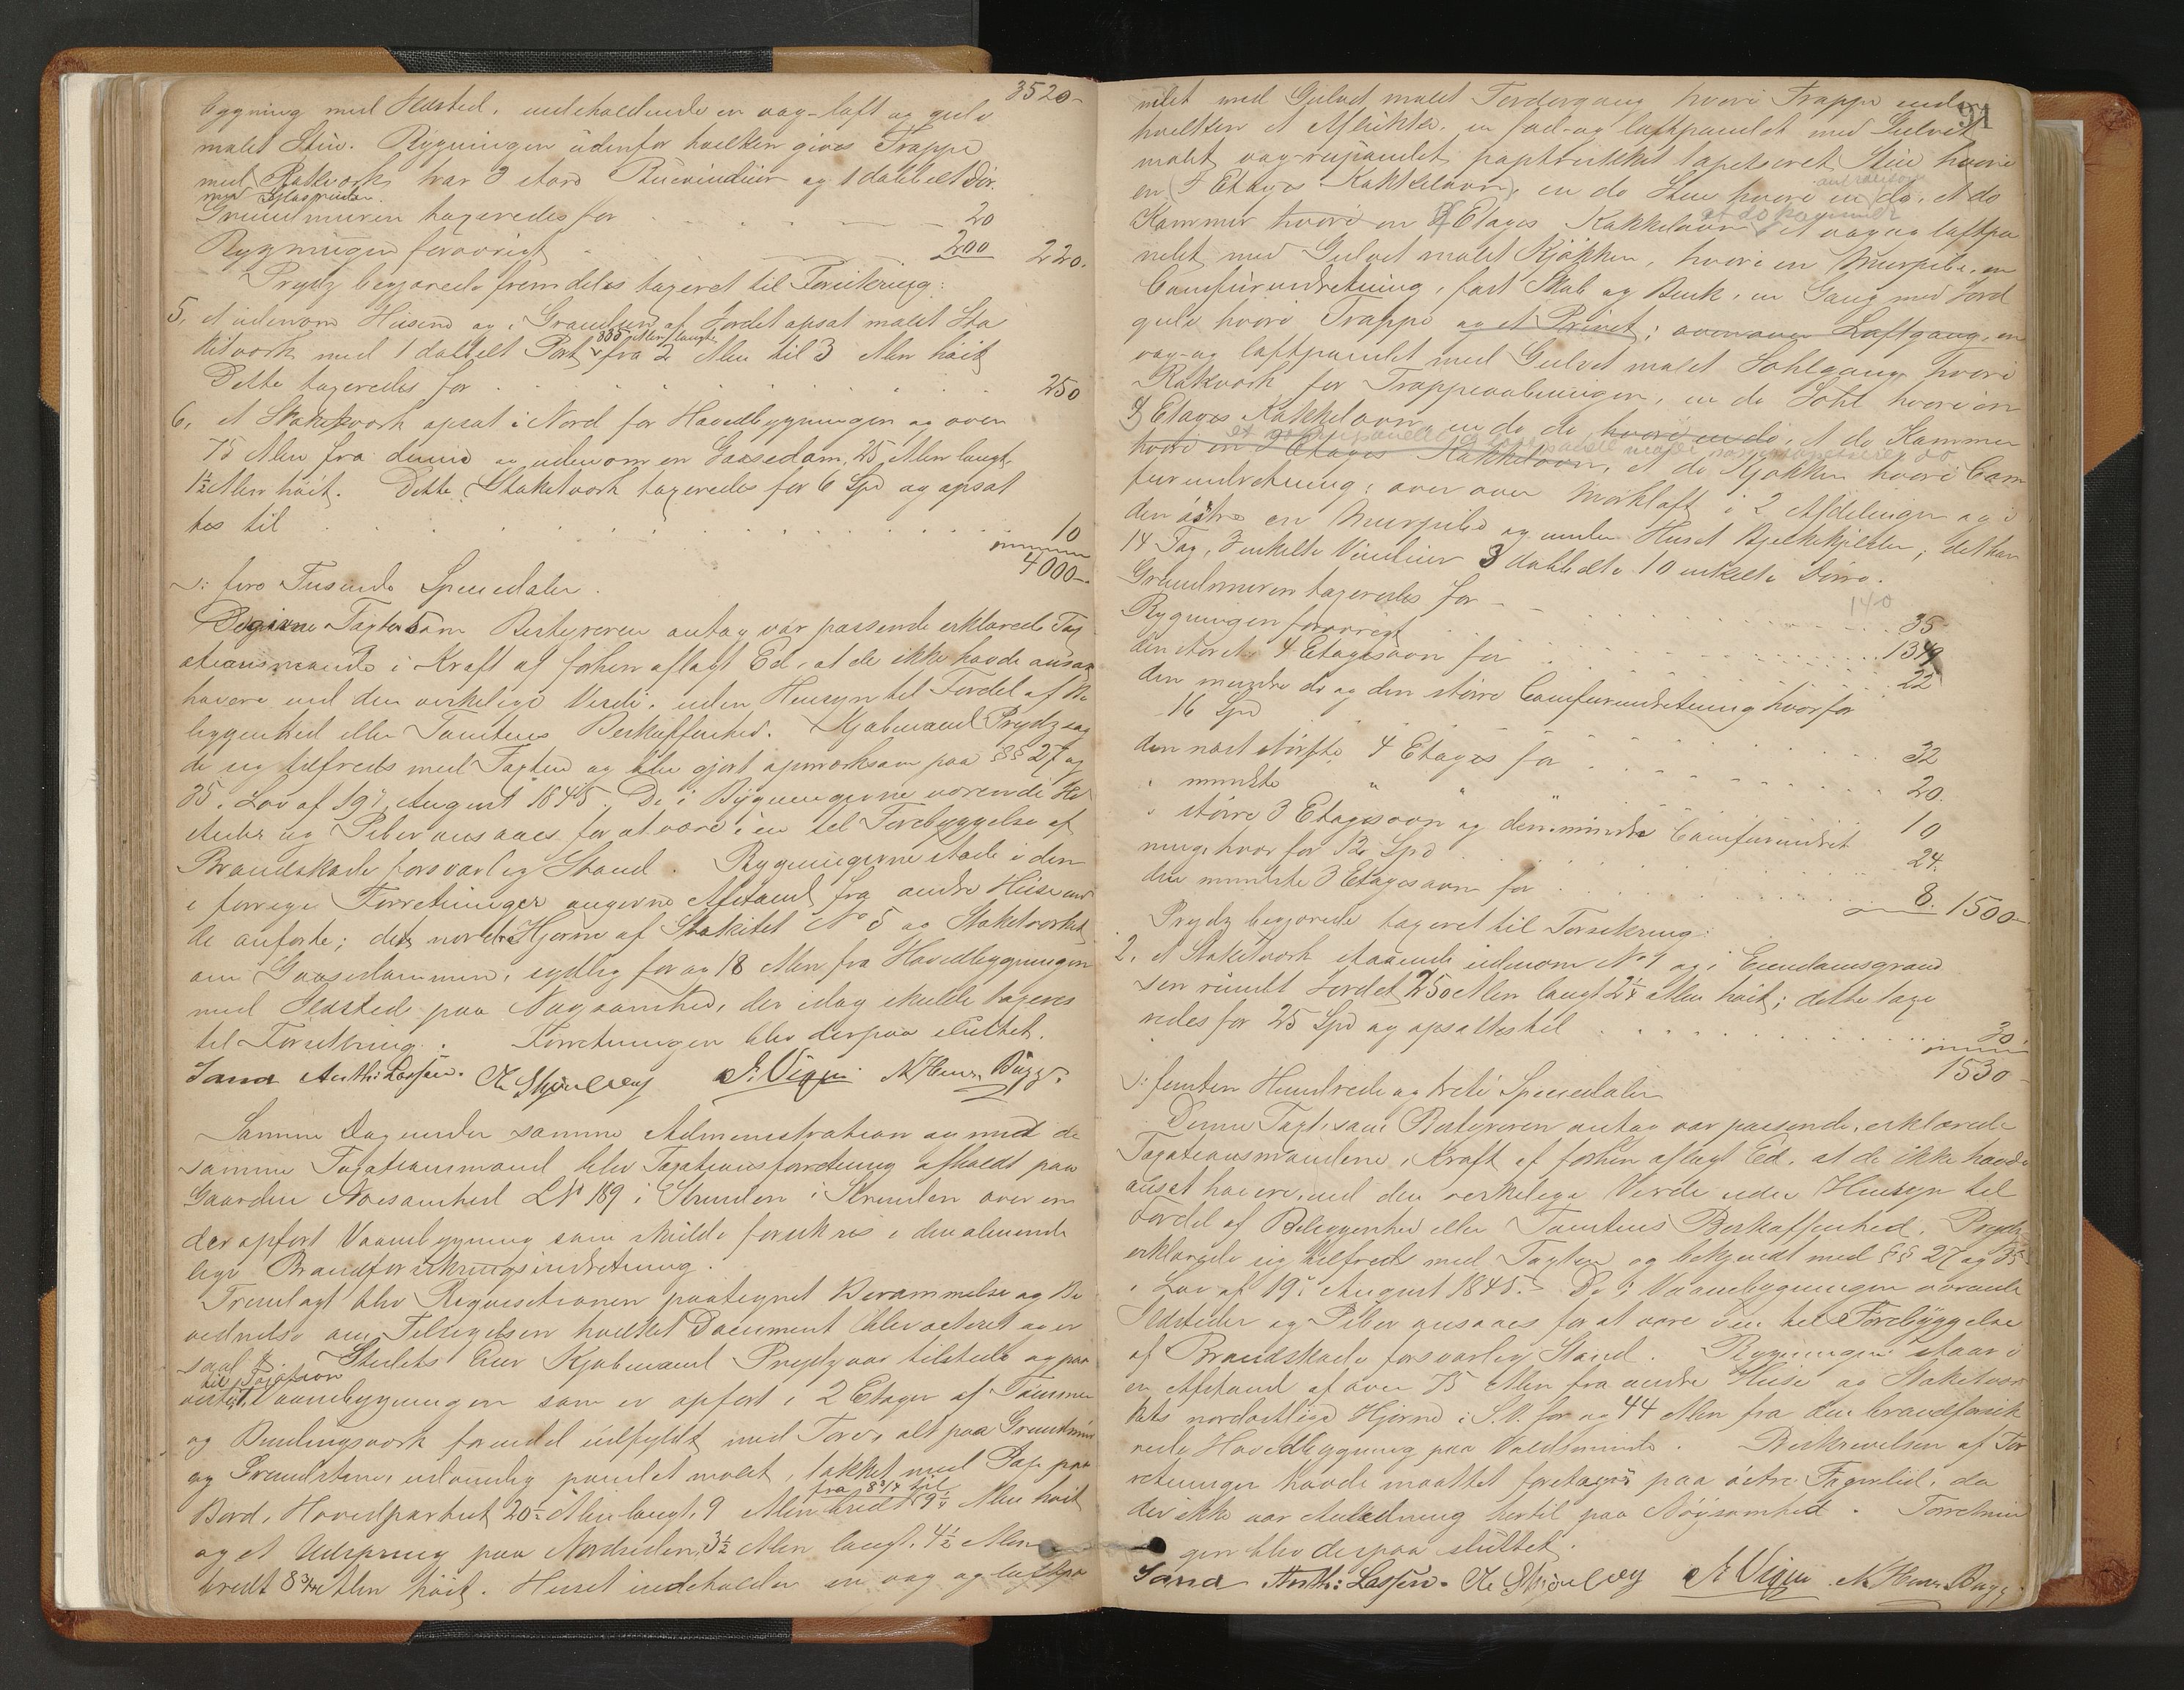 3520-
bygning med Ildsted, indeholdende en væg-loft og gulv
malet Stue. Bygningen udenfor hvilken gives Trappe
med Rækværk har 3 store Buevinduer og 1 dobbelt Dør
med Glasruder.
Grundmuren taxeredes for 20
Bygningen forøvrigt 200 220.
Prydz begjærede fremdeles taxeret til Forsikring:
5, et udenom Husene og i Grændsen af Jordet opsat malet Sta
kitværk med 1 dobbelt Port 335 Alen langt fra 2 Alen til 3 Alen høit
Dette taxeredes for 250
6, et Stakitværk opsat i Nord for Hovedbygningen og over
75 Alen fra denne og udenom en Gaasedam, 25 Alen langt
1½ Alen høit. Dette Stakitværk taxeredes for 6 Spd og opsat
tes til 10
4000-
ɔ: fire Tusinde Speciedaler.
Denne Taxt som Bestyreren antog var passende erklærede Tax
ationsmænde i Kraft af forhen aflagt Ed, at de ikke havde ansat
høiere end den virkelige Værdi, uden Hensyn til Fordel af Be
liggenhed eller Tomtens Beskaffenhed. Kjøbmand Prydz sag
de sig tilfreds med Taxten og blev gjort opmærksom paa §§ 27 og
35 i Lov af 19de August 1845. De i Bygningerne værende Ild
steder og Piber ansaaes for at være i en til Forebyggelse af
Brandskade forsvarlig Stand. Bygningerne staae i den
i forrige Forretninger angivne Afstand fra andre Huse end
de anførte; det nordre Hjørne af Stakitet No 5 og Stakitværket
om Gaasedammen, sydlig for og 18 Alen fra Hovedbygningen
med Ildsted paa Nøysomhed, der idag skulde taxeres
til Forsikring. Forretningen blev derpaa sluttet.
Sand Anth: Lassen. A. Vigen N. Henr. Bügge
Samme Dag under samme Administration og med de
samme Taxationsmænd blev Taxationsforretning afholdt paa
Gaarden Nøisomhed LN 189 i Strinden i Strinden over en
der opført Vaanbygning som skulde forsikres i den alminde
lige Brandforsikringsindretning.
Fremlagt blev Requisitionen paategnet Berammelse og Be
vidnelse om Tilsigelsen hvilket Document blev acteret og er
saal. Stedets Eier Kjøbmand Prydz var tilstede og paa
til Taxation
viste Vaanbygningen som er opført i 2 Etager af Tømmer
og Bindingsværk forendel udfyldt med Torv, alt paa Grundmur
og Grundstene, udvendig panelet malet, takket med Pap paa
fra 8¾ til
Bord, Hovedpartiet 20½ Alen langt, 9 Alen bredt 9¼ Alen høit
og et Udspring paa Nordsiden, 3½ Alen langt, 4½ Alen
bredt 8¾ Alen høit. Huset indeholder en væg og loftpa
91
nelet med Gulvet malet Fordergang hvori Trappe under
hvilken et Aflukke, en fad-og loftpanelet med Gulvet
malet væg-rupanelet paptrukket tapetseret Stue hvori
en 4 Etages Kakkelovn, en do Stue hvori en do, et do
Kammer hvori en 4 Etages Kakkelovn, et væg og loftpa
nelet med Gulvet malet Kjøkken, hvori en Murpibe, en
Camfurindretning, fast Skab og Bænk, en Gang med Jord
gulv hvori Trappe og et Privet; ovenover Loftgang, en
væg-og loftpanelet med Gulvet malet Sahlgang hvori
Rækværk for Trappeaabningen, en do Sahl hvori en
3 Etages Kakkelovn, en do do hvori en do, et do Kammer
hvori en 2 Etages Kakkelovn, et do Kjøkken hvori Cam
furindretning; over over Mørkloft i 2 Afdelinger og i
den østre en Murpibe og under Huset Bjelkekjelder; det har
14 Fag, 3 enkelte Vinduer 3 dobbelte 10 enkelte Døre.
140
Grundmuren taxeredes for 35
Bygningen forøvrigt 1349
den største 4 Etagesovn for 22
den mindre do og den større Camfurindretning hvorfor
16 Spd 32
den næst største 4 Etages for 20.
" mindste " " 10
" større 3 Etagesovn og den mindre Camfurindret
ning hvorfor 12 Spd 24.
den mindste 3 Etagesovn for 8. 1500-
Prydz begjærede taxeret til Forsikring:
2, et Stakitværk staaende udenom No 1 og i Eiendomsgrænd
sen rundt Jordet 250 Alen langt 2¼ Alen høit; dette taxe
redes for 25 Spd og opsattes til 30.
1530-
ɔ: femten Hundrede og treti Speciedaler
Denne Taxt, som Bestyreren antog var passende, erklærede
Taxationsmændene i Kraft af forhen aflagt Ed, at de ikke havde
ansat høiere, end den virkelige Værdi uden Hensyn til
Fordel af Beliggenhed eller Tomtens Beskaffenhed. Prydz
erklærede sig tilfreds med Taxten og bekjendt med §§ 27 og 35
i Lov af 19de August 1845. De i Vaanebygningen værende
Ildsteder og Piber ansaaes for at være i en til Forebyggelse
af Brandskade forsvarlig Stand. Bygningen staar i
en Afstand af over 75 Alen fra andre Huse og Stakitvær
kets nordøstlige Hjørne i S.V. for og 44 Alen fra den brandforsik
rede Hovedbygning paa Valdsminde. Beskrivelsen af For
retningen havde maattet foretages paa østre Fagerlid, da
der ikke var Anledning hertil paa Nøysomhed. Forretnin
gen blev derpaa sluttet.
Sand Anth: Lassen. A. Vigen N. Henr. Bügge